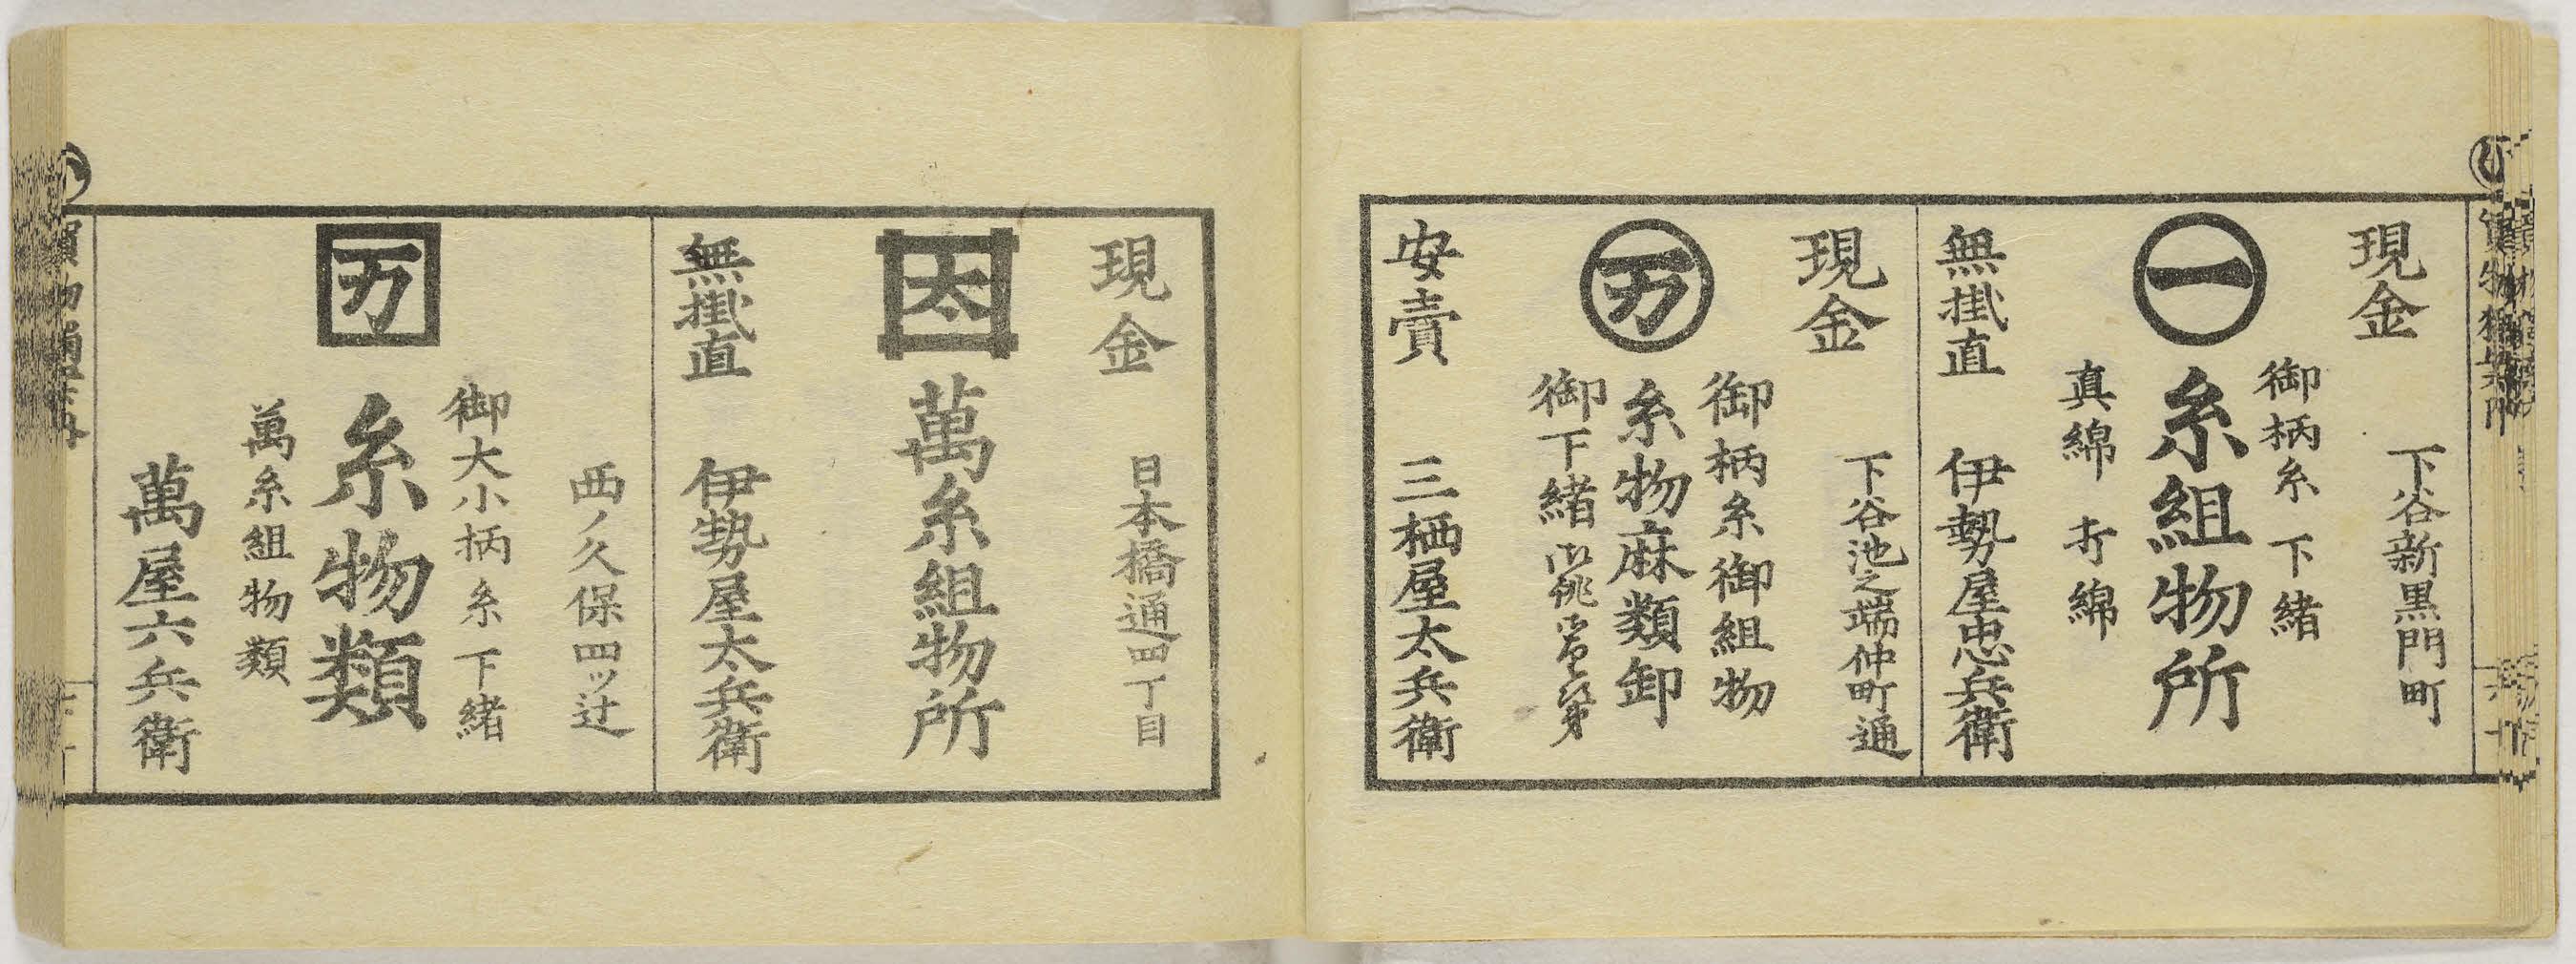 現金
下谷新黒門町
御柄糸 下緒
一
糸組物所
真綿 打綿
無掛直
伊勢屋忠兵衛
現金
下谷池之端仲町通
御柄糸御組物
万
糸物麻類卸
御下緒
安賣
三栖屋太兵衛
現金
日本橋通四丁目
太
萬糸組物所
無掛直
伊勢屋太兵衛
西ノ久保四ッ辻
御大小柄糸下緒
万
糸物類
萬糸組物類
萬屋六兵衛